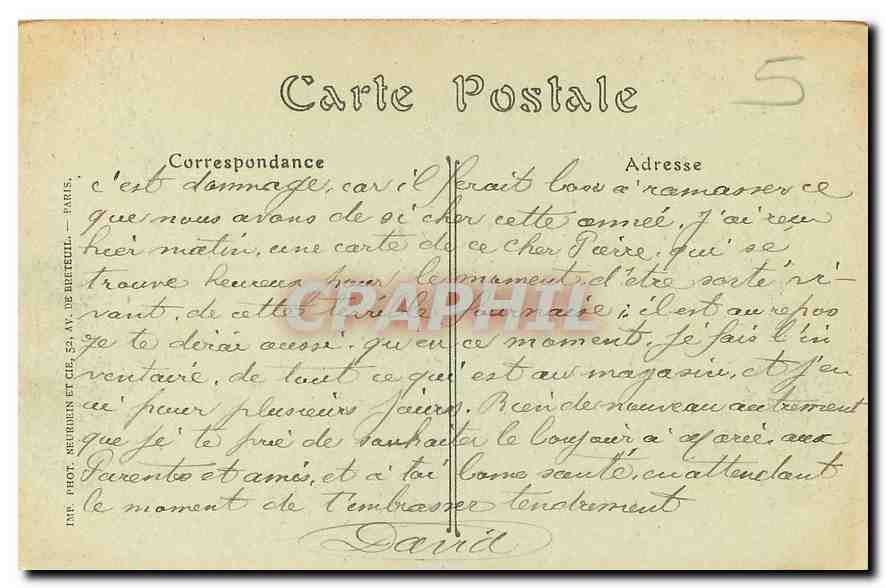 Carte Postale
5
Correspondance
Adresse
c'est dommage, car il ferait bon à ramasser ce
que nous avons de si cher cette année. J'ai reçu
hier matin, une carte de ce cher Pierre, qui se
trouve heureux pour le moment, d'être sorti vi-
vant, de cette terrible fournaise; il est au repos
Je te dirai aussi, qu'en ce moment, je fais l'in
ventaire, de tout ce qui est au magasin, et j'en
ai pour plusieurs jours. Rien de nouveau autrement
que je te prie de souhaiter le bonjour à Marie, aux
Parents et amis, et à toi bonne santé, en attendant
le moment de t'embrasser tendrement
David
IMP. PHOT. NEURDEIN ET CIE, 52, AV. DE BRETEUIL. — PARIS.
CPAPHIL